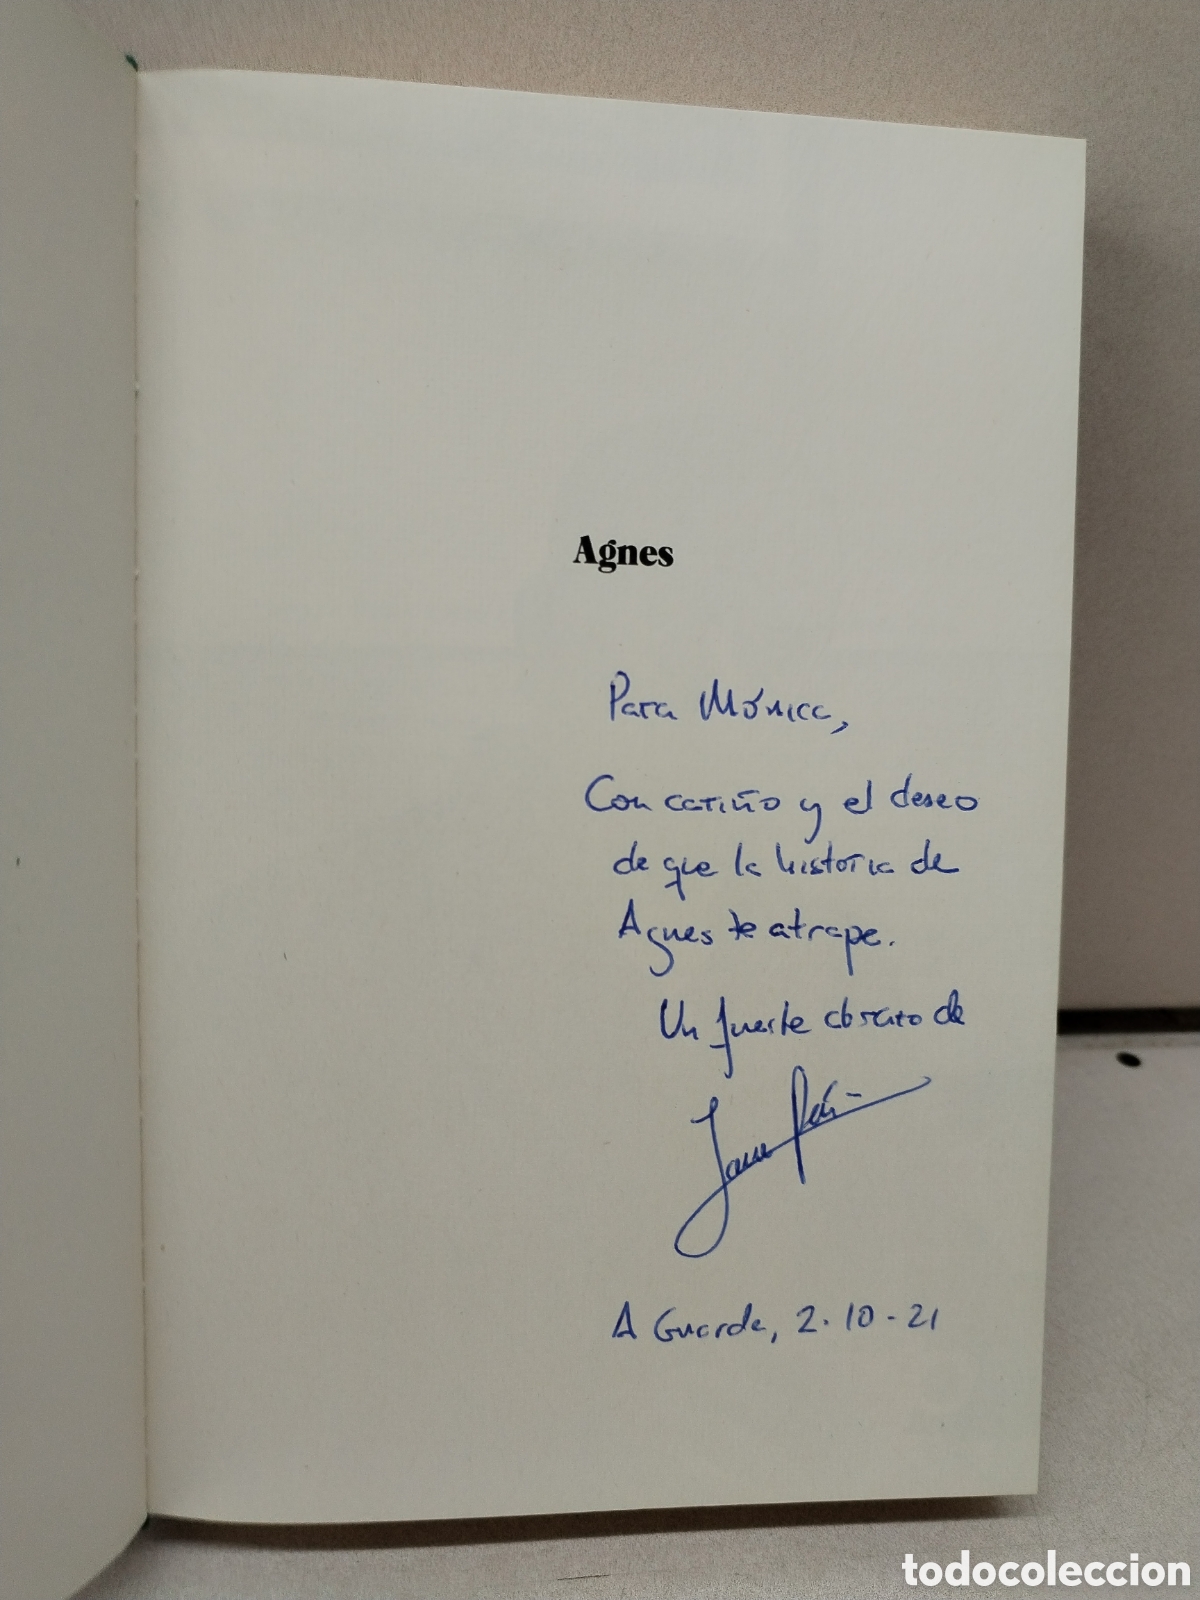 Agnes
Para Mónica,
Con cariño y el deseo
de que la historia de
Agnes te atrape.
Un fuerte abrazo de
A Guarda, 2.10-21
todocoleccion